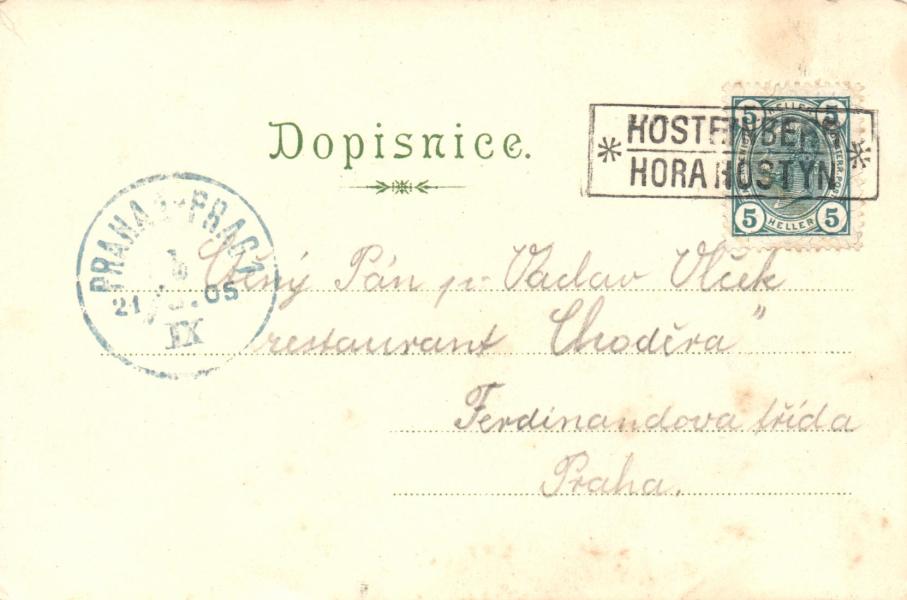 Dopisnice.
5 HELLER 5
* HOSTEINBERG *
HORA HOSTÝN
5 HELLER 5
PRAHA 1-PRAG 1
21 05
IX
Ctěný Pán p. Vaclav Vlček
restaurant Choděra"
Ferdinandova třída
Praha.